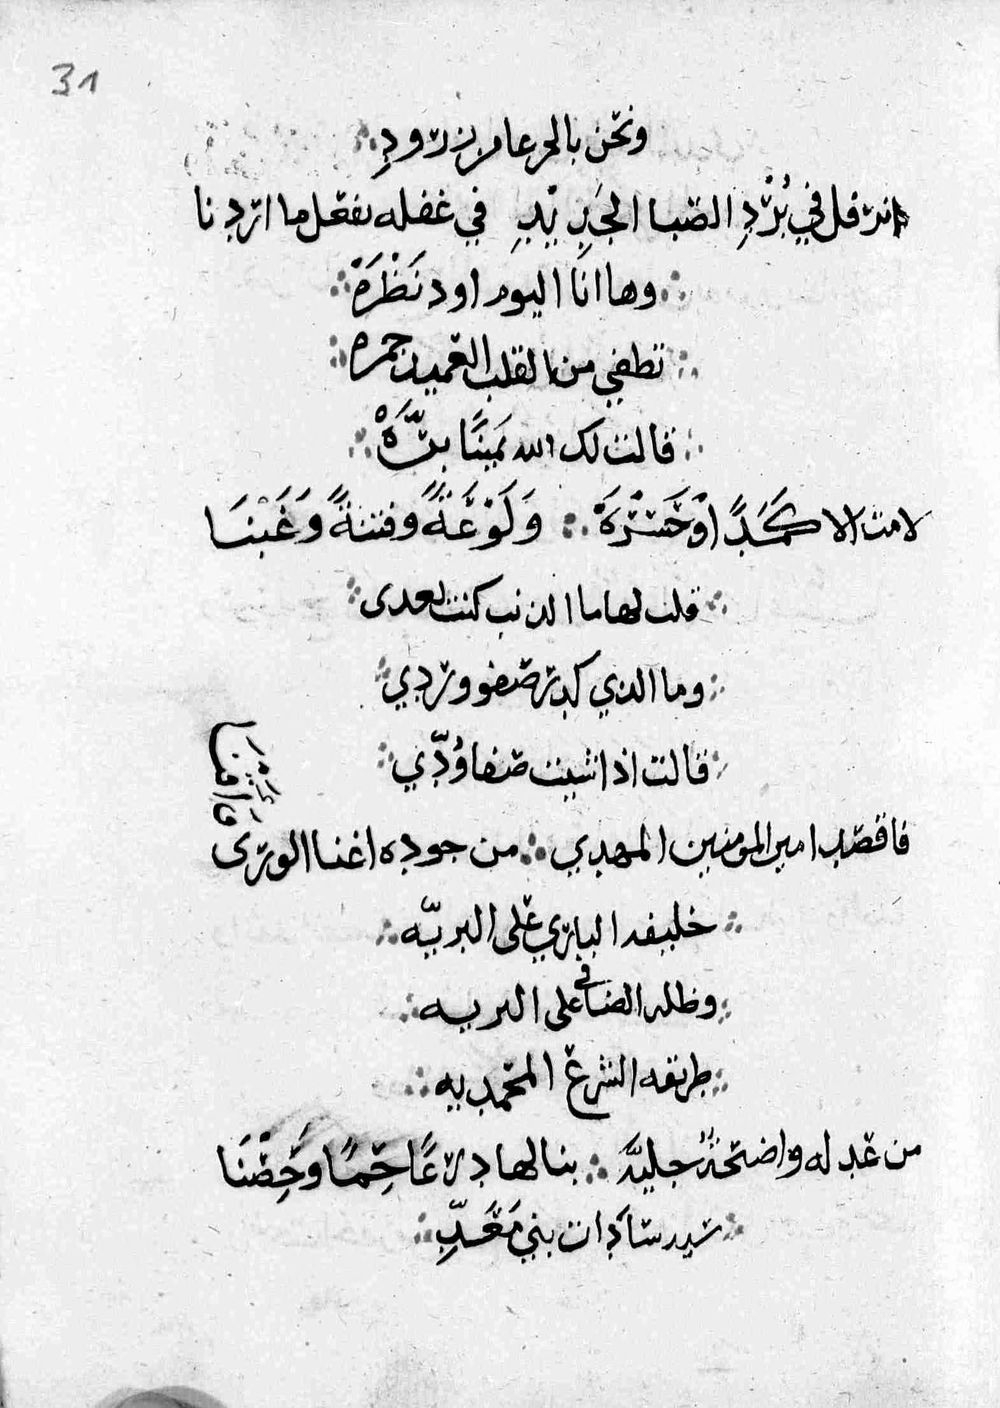 31
ونحن بالجرعا من زرود
نرفل في بُرْدِ الصبا الجَدِيدِ في غفله نفعل ما اردنا
وها انا اليوم اود نَظْرَهْ
تطفي من القلب العميد جمره
قالت لك الله يَمينًا بَرَّهْ
لامت الا كَمَدًا اوْ حَسْرَهْ وَلَوْعَةً وفتنةً وَغَبْنَا
قلت لها ما الذنب كنت بعدى
وما الذي كدر صفو وردي
قالت اذا شيت صفا وُدّي
فاقصد امير المومنين المهدي من جوده اغنا الورى
فاقنا
خليفه الباري على البريّه
وظله الضافي على البريه
طريقه الشرع المحمديه
من عدله واضحةٌ جليّه بنا لها درعًا حِمًا وحِصْنَا
سيد سادات بني مَعَدِّ